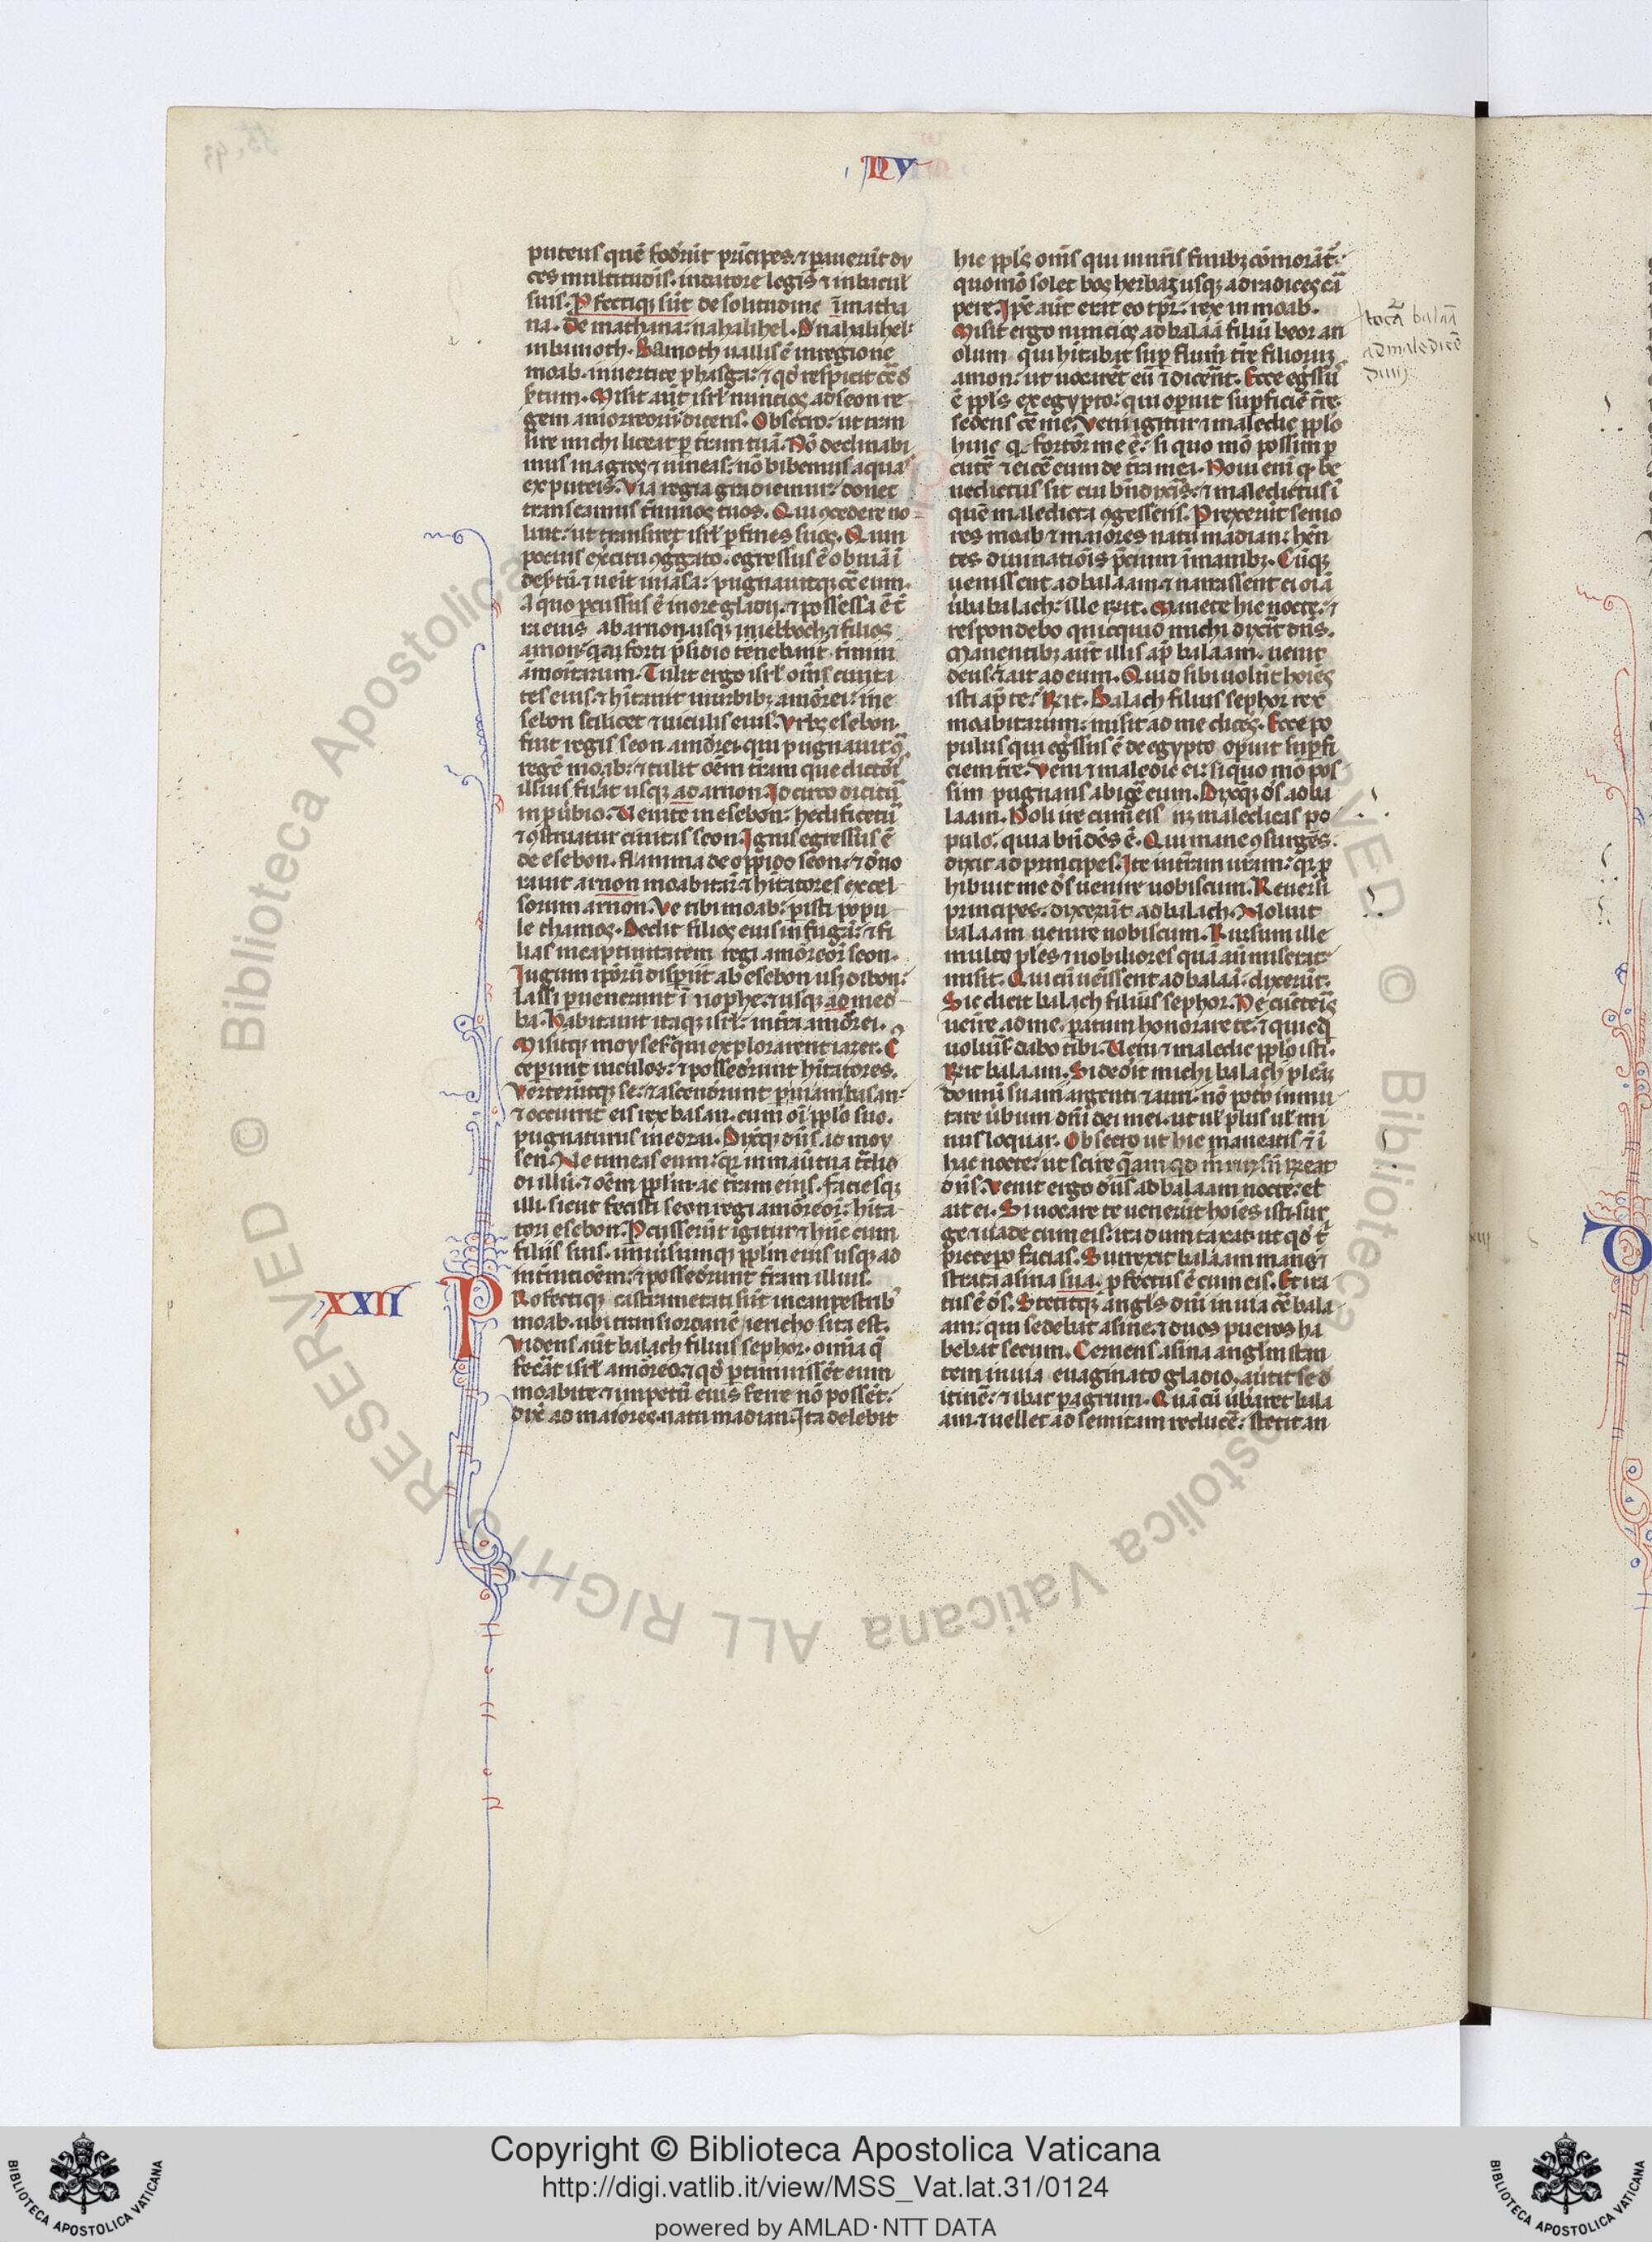 NV
puteus quē fod̄rūt pͥncipes. ⁊ pͣuerūt du
ces multitudīs. in datore legis ⁊ in bacul'
suis. Pfectiq; sūt de solitudine ī matha
na. De mathana: nahalihel. D̄ nahalihel:
in bamoth. Bamoth uallis ē in regione
moab. in uertice phasga: ⁊ qd̓ respicit cō
s̓tum. Misit aūt isrl̓ nuncios ad seon re
gem amorreoꝝ dicens. Obsecro: ut tran
sire michi liceat ꝑ terram tuā. Nō declinabi
mus in agros ⁊ uineas: nō bibemus aquas
ex puteis. Via regia gradiemur: donec
transeamus tmīnos tuos. Qui ꝯcedere no
luit: ut transiret isrl̓ ꝑ fines suos. Quin
pocius exercitu ꝯgregato. egressus ē obuiā ī
des̓tū. ⁊ ueīt in iasa: pugnauitq; cō eum.
A quo pcussus ē in ore gladii. ⁊ possessa ē t̄
ra eius ab arnon usq; iebboch. ⁊ filios
amon: quia forti p̓sidio tenebant̄ tmini
amonitarum. Tulit ergo isrl̓ om̄s ciuita
tes eius. ⁊ hītauit in urbib; amōrei: in e
sebon scilicet ⁊ uiculis eius. Vrbs esebon.
fuit regis seon amōrei. qui pugnauit cō
regē moab: ⁊ tulit oēm t̄ram que dictōis
illius fuāt usq; ad arnon. Idcirco dicitū
in pūbio. Venite in esebon: hedificetū
⁊ ꝯstruatur ciuitas seon. Ignis egressus ē
de esebon. flamma de oppido seon. ⁊ deuo
rauit arnon moabitaꝝ. ⁊ hītatores excel
sorum arnon. Ve tibi moab: pisti popu
le chamos. Dedit filios eius in fugā: ⁊ fi
lias in captiuitatem regi amōreoꝝ seon.
Iugum ipōrū dispiit ab esebon usq; dibon:
lassi puenerunt ī nophe. ⁊ usq; ad med
ba. Habitauit itaq; isrl̓: in t̄ra amōrei.
Misitq; moyses qui explorarent iazer. C
ceperunt uiculos: ⁊ possedrunt hītatores.
Verterūtq; se: ⁊ ascendrunt p uiam basan:
⁊ occurrit eis rex basan. cum oī ppl̓o suo.
pugnaturus in edrai. Dixitq; dn̄s. ad moy
sen. Ne timeas eum: qr in manu tua t̄did
di illū. ⁊ oēm ppl̓m. ac terram eius. faciesq;
illi: sicut fecisti seon regi amōreoꝝ: hīta
tori esebon. Pcusserūt igitur ⁊ hūc cum
filiis suis. uniūsumq; ppl̓m eius usq; ad
int̄nicōēm. ⁊ possedrunt t̄ram illius.
XXII
PRofectiq; castrametati sūt in campestrib'
moab. ubi trans iordanē iericho sita est.
Videns aūt balach filius sephor. omīa q̄
fecāt isrl̓ amōreo. ⁊ qd̓ ptimuissēt eum
moabite. ⁊ impetū eius ferre nō possēt:
dix̄ ad maiores natu madian. Ita delebit
hic ppl̓s om̄s qui in nr̄is finib; cōmorāt̄:
quomō solet bos herbas usq; ad radices cā
pere. Ip̄e aūt erat eo tp̄r: rex in moab.
Misit ergo nuncios ad balaā filiū beor ari
olum qui hītabat suꝑ flum̄ t̄re filioruꝫ
amon: ut uocarēt eū ⁊ dicerēt. Ecce egr̄ssus
ē ppl̓s ex egypto: qui opuit supficiē t̄re.
sedens cō me. Veni igitur ⁊ maledic ppl̓o
huic q̓ fortior me ē: si quo mō possim p
cutē ⁊ eicē eum de t̄ra mea. Noui enī qd be
nedictus sit cui bn̄dixīs: ⁊ maledictus ī
quē maledicta ꝯgesseris. Prexerūt senio
res moab ⁊ maiores natu madian: hēn
tes diuinationis pcium ī manib;. Cūq;
uenissent ad balaam. ⁊ narrassent ei oīa
ūba balach: ille rn̄t. Manete hic nocte: ⁊
respondebo quicquid michi dixīt dn̄s.
Manentib; aūt illis ap̄ balaam. uenit
deus. ⁊ ait ad eum. Quid sibi uolūt hoīes
isti ap̄ te? Rn̄t. Balach filius sephor rex
moabitarum: misit ad me dices. Ecce po
pulus qui egr̄ssus ē de egypto opuit supfi
ciem t̄re. Veni ⁊ maledic ei: si quo mō pos
sim pugnans abigē eum. Dixitq; ds ad ba
laam. Noli ire cum eis nꝫ maledicas po
pulo. quia bn̄dc̄s ē. Qui mane ꝯsurgēs.
dixit ad principes. Ite in t̄ram uram: qr p
hibuit me ds uenire uobiscum. Reuersi
principes. dixerūt ad balach. Noluit
balaam uenire nobiscum. Rursum ille
multo ples ⁊ nobiliores quā an̄ miserat:
misit. Qui cū ueīssent ad balaā: dixerūt.
Sic dicit balach filius sephor. Ne cūcteīs
ueīre ad me. paratum honorare te: ⁊ quicqd
uoluīs dabo tibi. Veni ⁊ maledic ppl̓o isti.
Rn̄t balaam. Si ded̓it michi balach plenā
domū suam argenti ⁊ auri. nō poto īnmu
tare ūbum dn̄i dei mei. ut ul̓ plus ul̓ mi
nus loquar. Obsecro ut hic maneatis ⁊ ī
hac nocte: ut scire q̄am qd m̄ rursū rn̄deat
dn̄s. Venit ergo dn̄s ad balaam nocte: et
ait ei. Si uocare te uenerūt hoīes isti. sur
ge ⁊ uade cum eis: ita dum taxat. ut qd̓ t̄
precepo facias. Surrexit balaam mane: ⁊
strata asina sua. pfectus ē cum eis. Et ira
tus ē ds. Stetitq; angl̓s dn̄i in uia cō bala
am: qui sedebat asine. ⁊ duos pueros ha
bebat secum. Cernens asina angl̓m stan
tem in uia euaginato gladio. auertit se de
itinē: ⁊ ibat p agrum. Quā cū ūbaret bala
am. ⁊ uellet ad semitam reducē: stetit an
balaā
ad maledicē
Copyright © Biblioteca Apostolica Vaticana
http://digi.vatlib.it/view/MSS_Vat.lat.31/0124
powered by AMLAD·NTT DATA
BIBLIOTECA APOSTOLICA VATICANA
BIBLIOTECA APOSTOLICA VATICANA